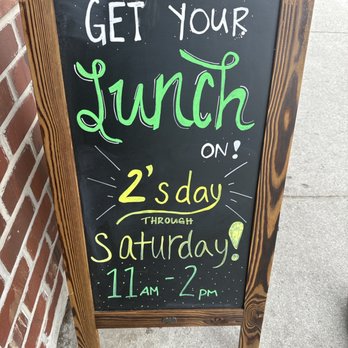 GET YOUR
Lunch
ON!
2'sday
THROUGH
Saturday!
11AM-2PM